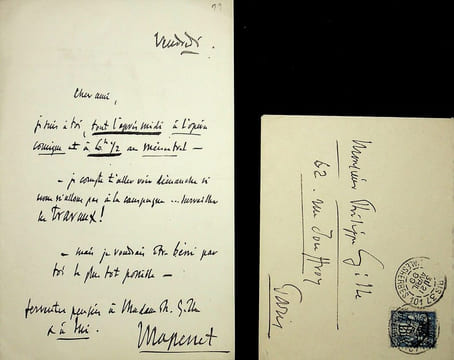 Vendredi.
Cher ami,
je suis à toi, tout l'après midi à l'opéra
comique et à 6h 1/2 au ménestrel —
— je compte t'aller voir dimanche si
nous n'allons pas à la campagne ... surveiller
les travaux!
— mais je voudrais être béni par
toi le plus tôt possible —
ferventes pensées à Madame Ph. Gille
& à toi
Massenet
Monsieur Philippe Gille
62. rue Jouffroy
Paris